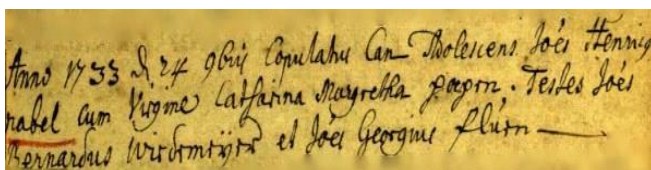 Anno 1733 d 24 9bris Copulatus Can Adolescens Joés Henricus
nabel cum Virgine Catharina Margretha poepen. Testes Joés
Bernardus Wiedemeÿer et Joés Georgius flúen